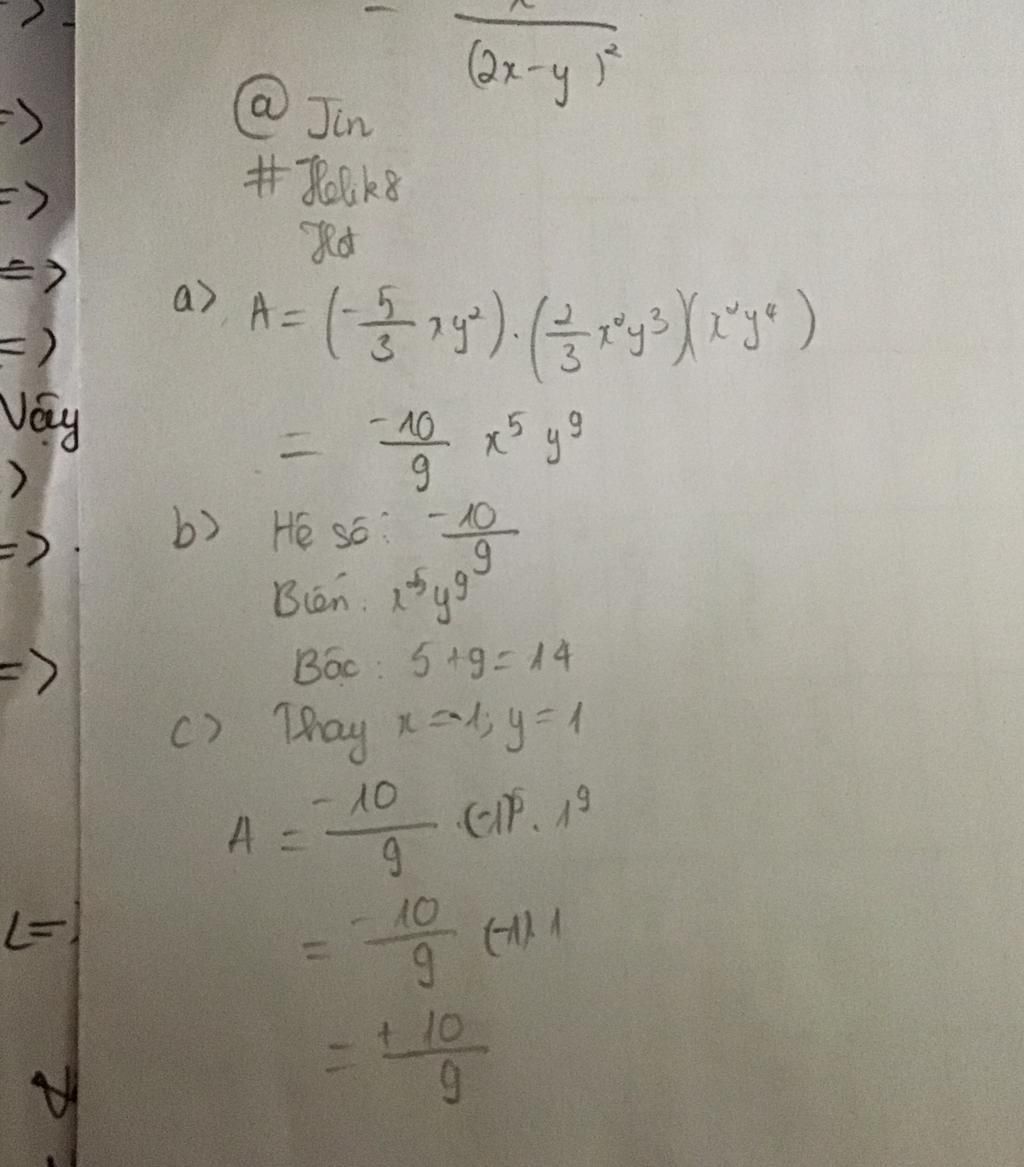 (2x-y)²
@ Jin
# Helik8
a> A = (-5/3 xy²).(2/3 x²y³)(x²y⁴)
= -10/9 x⁵ y⁹
b> Hệ số: -10/9
Biến: x⁵y⁹
Bậc: 5+9=14
c> Thay x=-1; y=1
A = -10/9 .(-1)⁵. 1⁹
= -10/9 (-1).1
= +10/9
=>
=>
=>
=>
Vậy
=>
=>